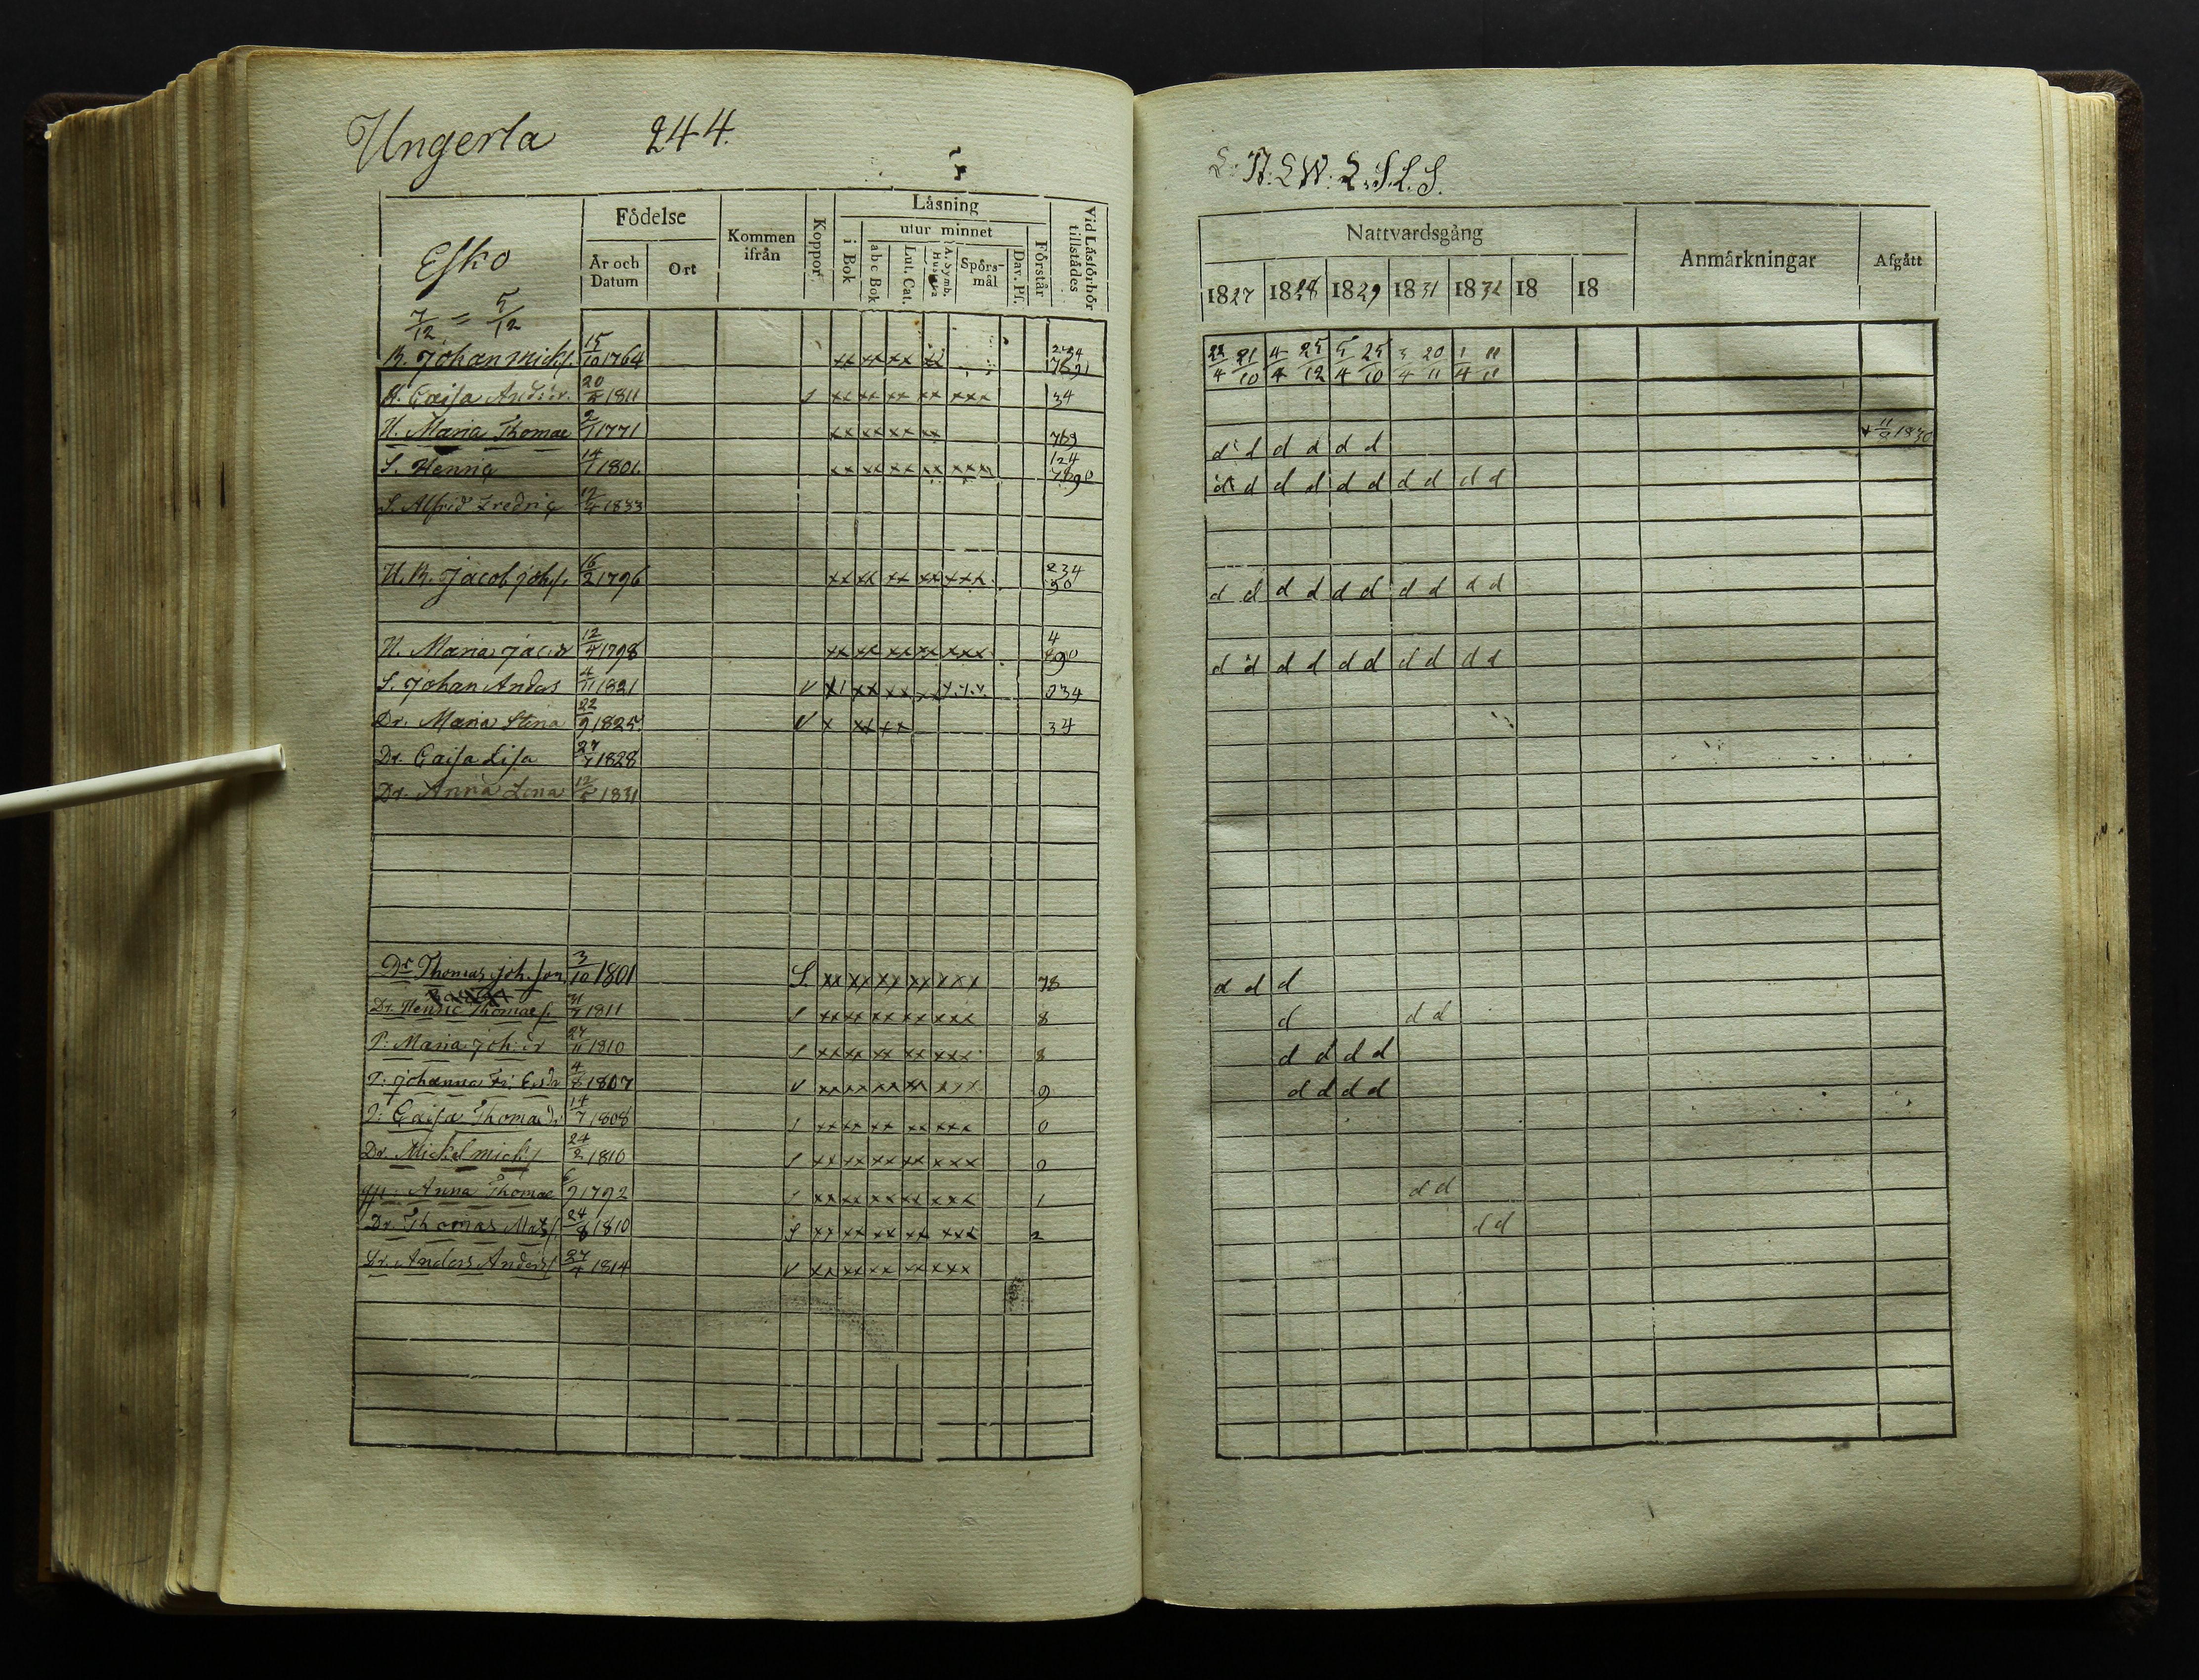 Ungerla 244.
Esko
7/12 = 5/12
Födelse
År och Datum
Ort
Kommen ifrån
Koppor
Läsning
i Bok
utur minnet
abc Bok
Lut. Cat.
A. Symb. Hust.
Spörs-mål
Dav. Ps.
Förstår
Vid Läsförhör tillstådes
B. Johan Mick/. 15/10 1764 xx xx xx xx 234 7891
H. Caisa 20 1811 S xx xx xx xx xxx 34
H. Maria Thomae 2/1 1771 xx xx xx xx 789
S. Henric 14/1 1801 xx xx xx xx xxx 124
S. Alfrid Fredric 1833
N.B. Jacob Joh/. 16/2 1796 xx xx xx xx xxx 234 90
H. Maria Jac:dr 12 1798 xx xx xx xx xxx 4 890
S. Johan Anders 4/11 1821 V xx xx xx xxx 034
Dr. Maria Stina 22/9 1825 V x xx xx 34
Dr. Caisa Lisa 27/7 1828
Dr. Anna Lena 12/5 1831
Dr Thomas Joh. son 3/10 1801 S. xx xx xx xx xxx 78
Dr. Henric Thomae/. 31 1811 S xx xx xx xx xxx 8
P: Maria Joh: dr 27/11 1810 S xx xx xx xx xxx 8
P: Johanna 4/8 1807 V xx xx xx xx xxx 9
P: Caisa Thomaed: 14/7 1808 S xx xx xx xx xxx 0
Dr. Mickel Mick/ 24/2 1810 S xx xx xx xx xxx 0
Anna Thomae 6/9 1792 S xx xx xx xx xxx 1
Dr. Thomas Mats/. 24/8 1810 S xx xx xx xx xxx 2
Dr. Anders Anders/ 27 1814 V xx xx xx xx xxx
L. N. L W. L. S. L. S.
Nattvardsgång
Anmärkningar
Afgått
1827 1828 1829 1831 1832 18 18
22/4 21/10 4/4 25/12 5/4 25/10 3/4 20/11 1/4 11/11
d d d d d d 11/9 1830
d d d d d d d d d d
d d d d d d d d d d
d d d d d d d d d d
d d d
d d d
d d d d
d d d d
d d
d d